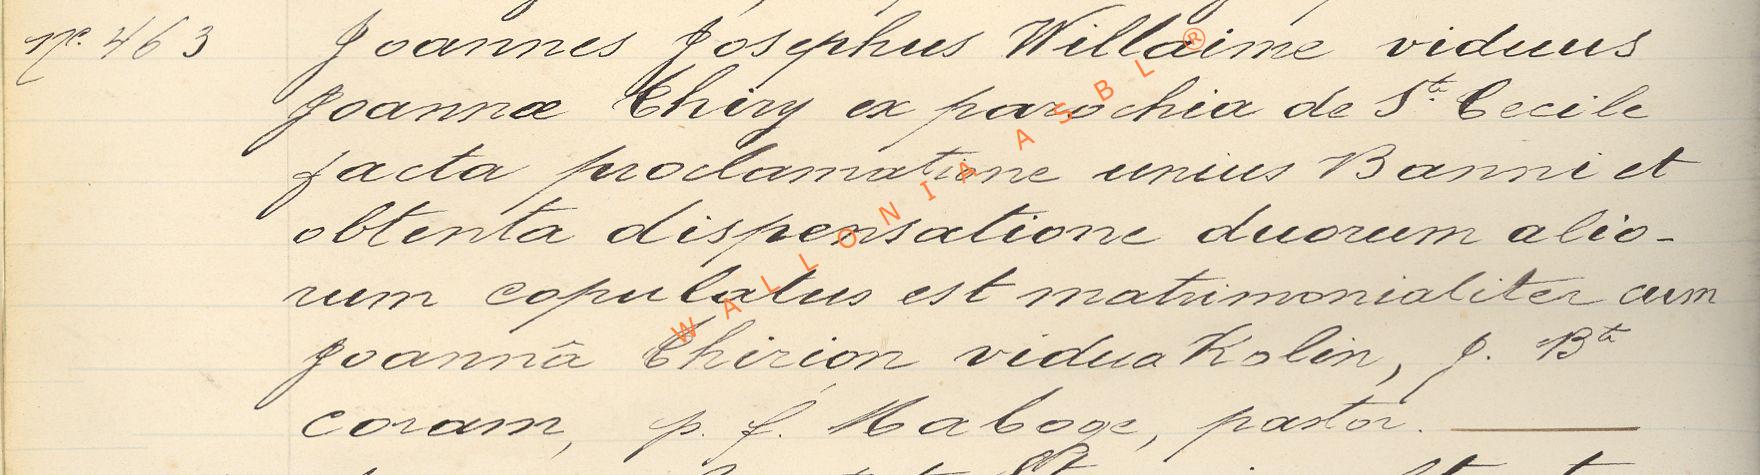 N°. 463 Joannes Josephus Willaime viduus
Joannæ Thiry ex parochia de Ste. Cecile
facta proclamatione unius Banni et
obtenta dispensatione duorum alio-
rum copulatus est matrimonialiter cum
Joannâ Thirion vidua Kolin, J. Bta
coram, p. f. Maboge, pastor.
WALLONIA ASBL ®